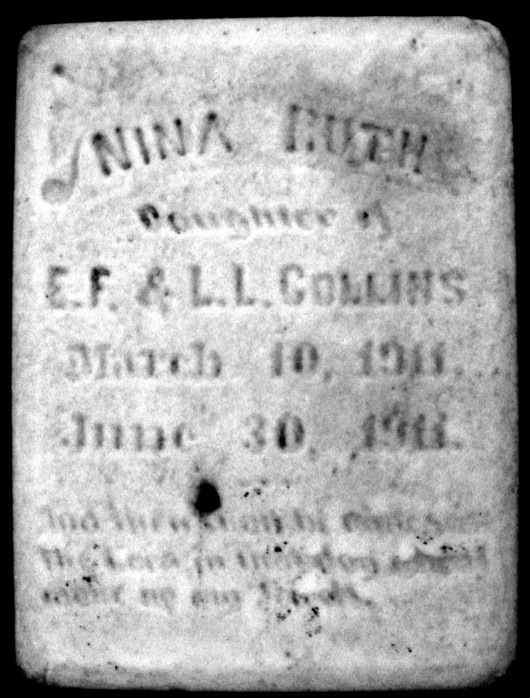 NINA RUTH
Daughter of
E.F. & L.L. COLLINS
March 10, 1911.
June 30, 1911.
And they shall be mine
The Lord in that day
make up my Jewels.